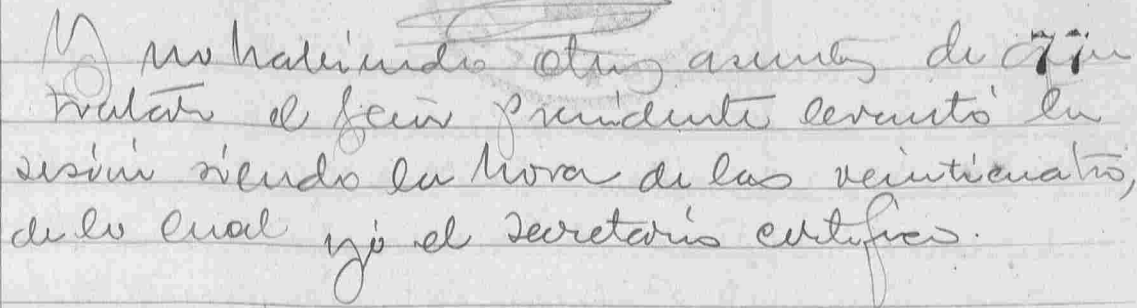 Y no habiendo otros asuntos de que
tratar el señor Presidente levantó la
sesión siendo la hora de las veinticuatro,
de lo cual yo el secretario certifico.